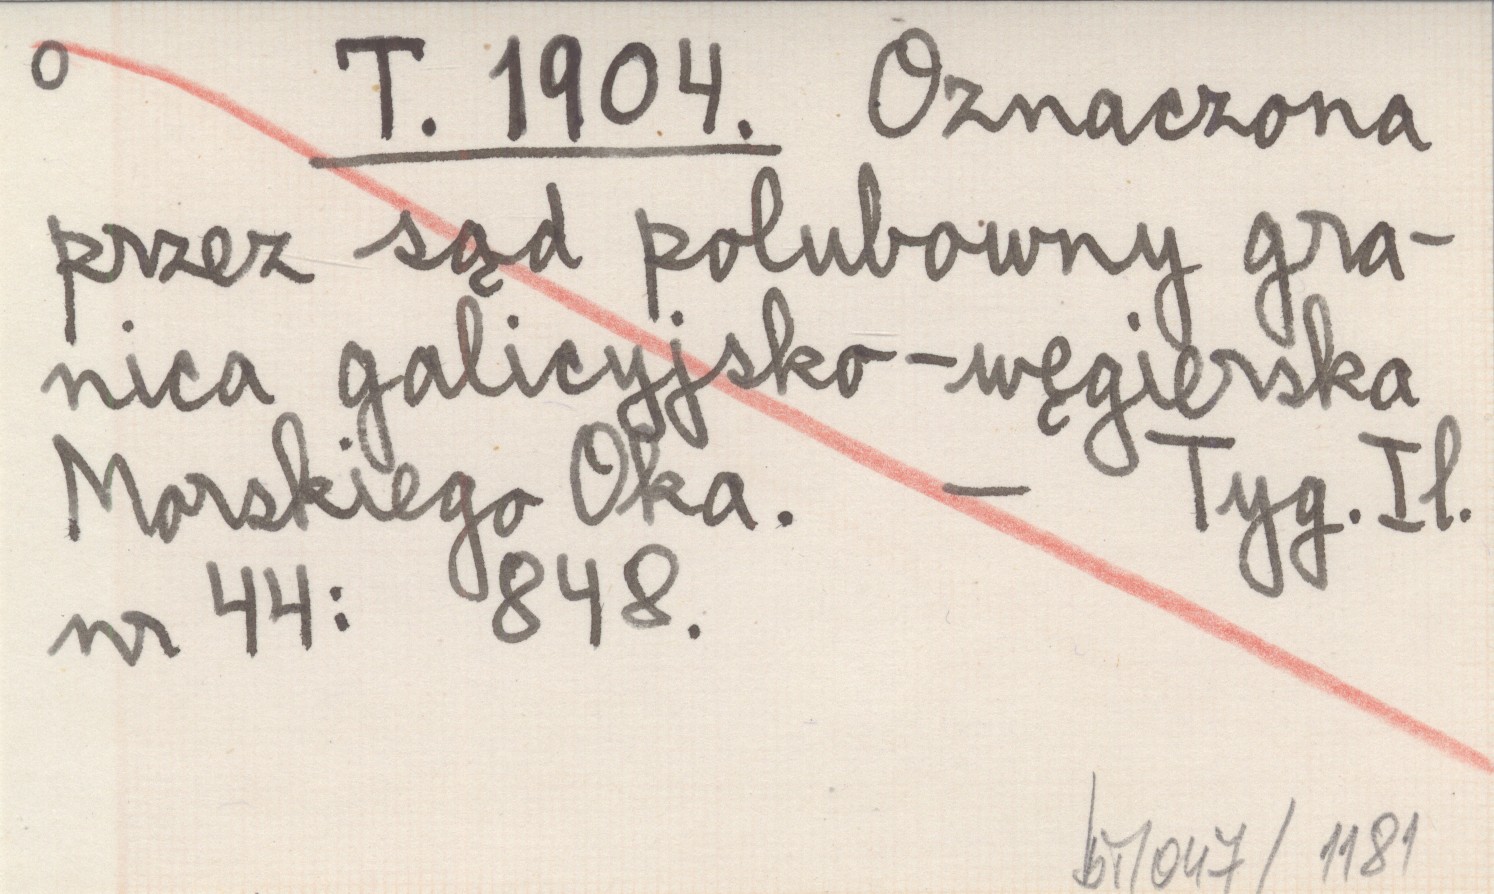 o T. 1904. Oznaczona
przez sąd polubowny gra-
nica galicyjsko-węgierska
Morskiego Oka. — Tyg. Il.
nr 44: 848.
bī/047/1181